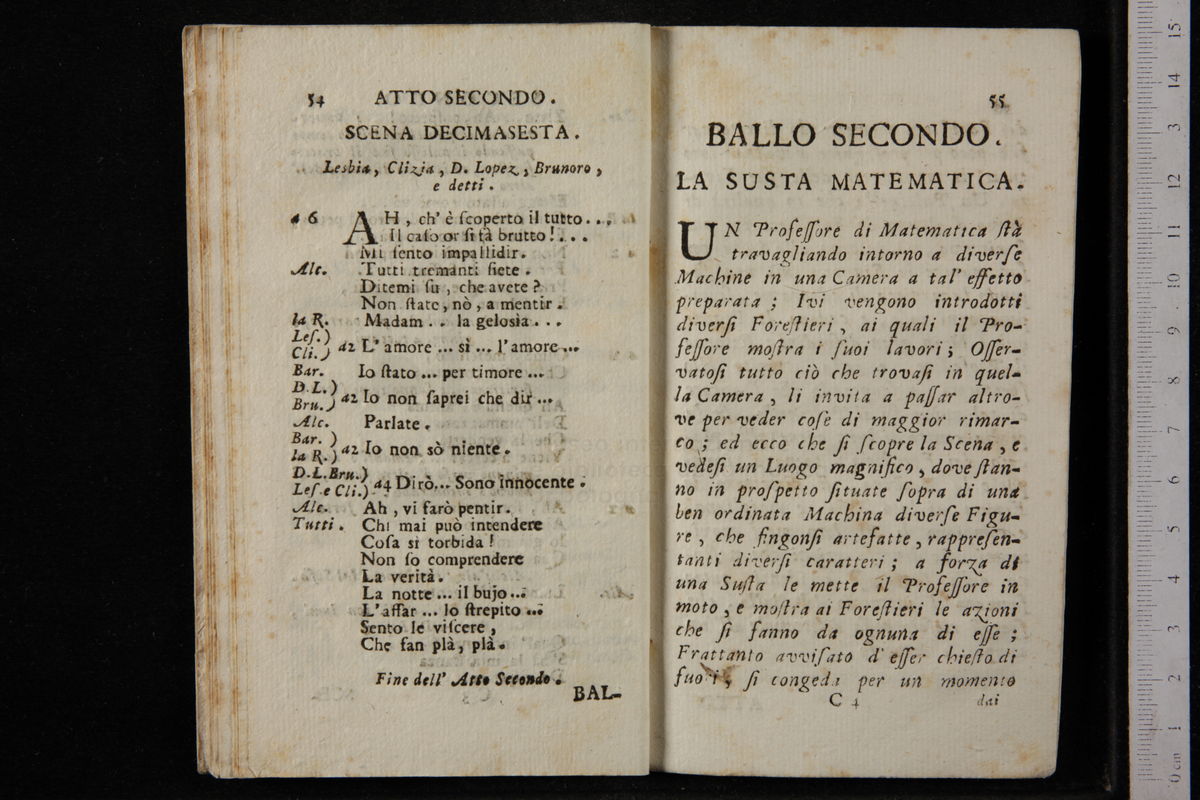 54 ATTO SECONDO.
SCENA DECIMASESTA.
Lesbia, Clizia, D. Lopez, Brunoro,
e detti.
a 6 AH, ch' è ſcoperto il tutto...
Il caſo or ſi fà brutto!...
Mi ſento impallidir.
Alc. Tutti tremanti ſiete.
Ditemi ſu, che avete?
Non ſtate, nò, a mentir.
la R. Madam.. la geloſia...
Leſ.)
Cli.) a2 L' amore... sì... l'amore...
Bar. Io ſtato... per timore...
D.L.)
Bru.) a2 Io non ſaprei che dir...
Alc. Parlate.
Bar. )
la R.) a2 Io non sò niente.
D.L.Bru.)
Leſ.e Cli.) a4 Dirò... Sono innocente.
Alc. Ah, vi farò pentir.
Tutti. Chi mai può intendere
Coſa sì torbida!
Non ſo comprendere
La verità.
La notte... il bujo...
L'affar... lo ſtrepito...
Sento le viſcere,
Che fan plà, plà.
Fine dell' Atto Secondo.
BAL-
55
BALLO SECONDO.
LA SUSTA MATEMATICA.
UN Profeſſore di Matematica ſtà
travagliando intorno a diverſe
Machine in una Camera a tal' effetto
preparata; Ivi vengono introdotti
diverſi Foreſtieri, ai quali il Pro-
feſſore moſtra i ſuoi lavori; Oſſer-
vatoſi tutto ciò che trovaſi in quel-
la Camera, li invita a paſſar altro-
ve per veder coſe di maggior rimar-
co; ed ecco che ſi ſcopre la Scena, e
vedeſi un Luogo magnifico, dove ſtan-
no in proſpetto ſituate ſopra di una
ben ordinata Machina diverſe Figu-
re, che fingonſi artefatte, rappreſen-
tanti diverſi caratteri; a forza di
una Suſta le mette il Profeſſore in
moto, e moſtra ai Foreſtieri le azioni
che ſi fanno da ognuna di eſſe;
Frattanto avviſato d' eſſer chieſto di
fuori, ſi congeda per un momento
C 4 dai